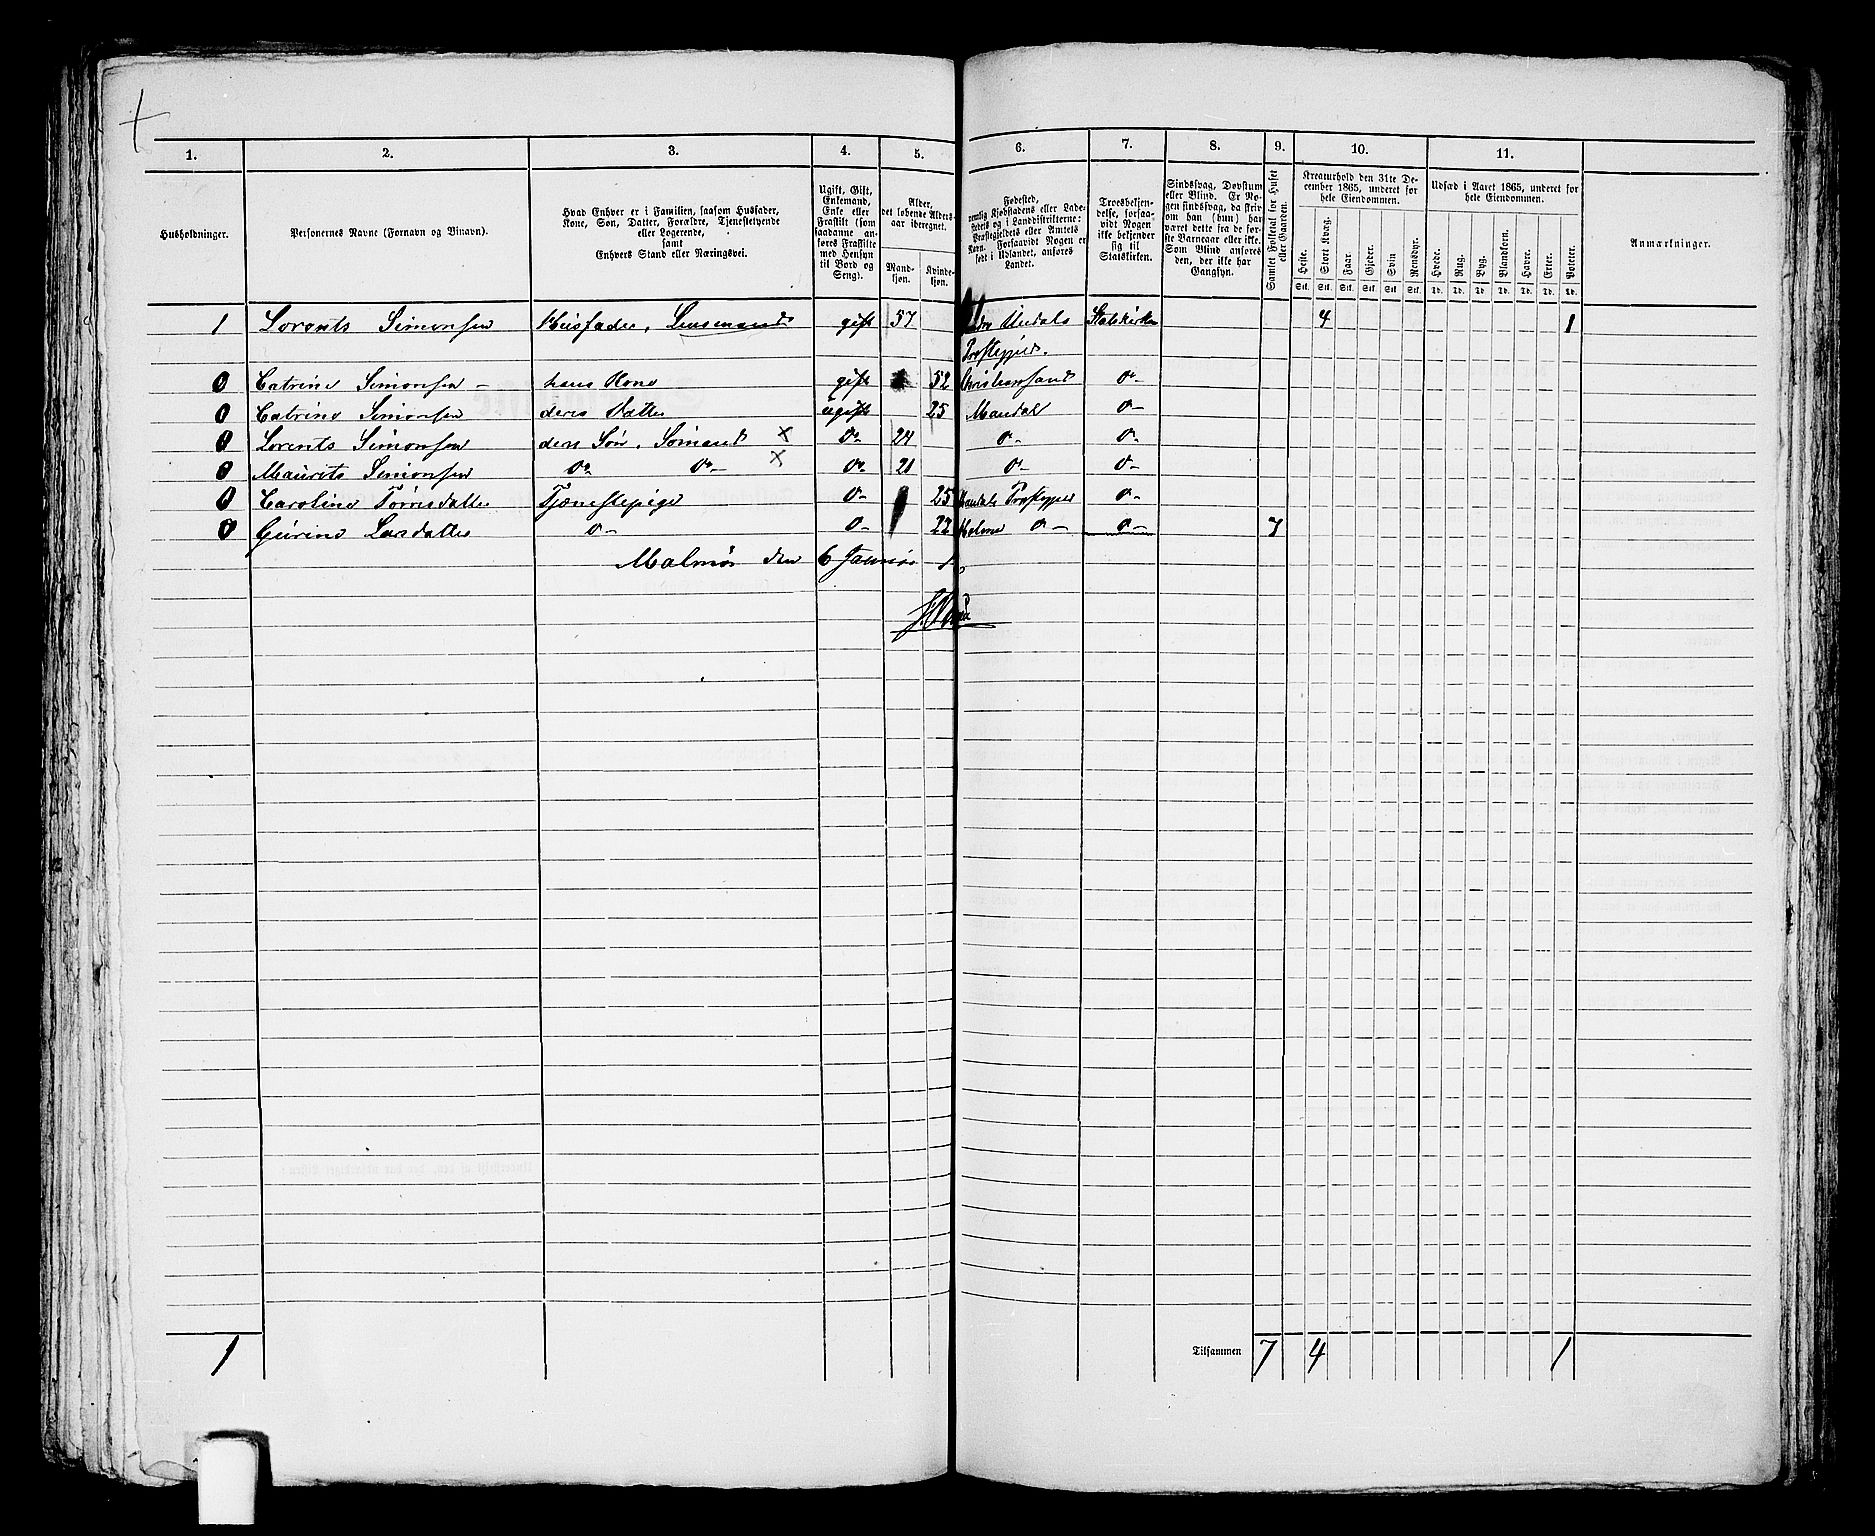 1. 2. 3. 4. 5. 6. 7. 8. 9. 10. 11.
Husholdninger.
Personernes Navne (Fornavn og Binavn).
Hvad Enhver er i Familien, saasom Husfader,
Kone, Søn, Datter, Forældre, Tjenestetyende
eller Logerende,
samt
Enhvers Stand eller Næringsvei.
Ugift, Gift,
Enkemand,
Enke eller
Fraskilt (som
saadanne an-
føres Fraskilte
med Hensyn
til Bord og
Seng).
Alder,
det løbende Alders-
aar iberegnet.
Mand-
kjøn.
Kvinde-
kjøn.
Fødested,
nemlig Kjøbstadens eller Lade-
stedets og i Landdistrikterne:
Præstegjeldets eller Amtets
Navn. Forsaavidt Nogen er
født i Udlandet, anføres
Landet.
Troesbekjen-
delse, forsaa-
vidt Nogen
ikke bekjender
sig til
Statskirken.
Sindssvag, Døvstum
eller Blind. Er No-
gen sindssvag, da skriv
om han (hun) har
været dette fra de før-
ste Barneaar eller ikke.
Som Blind anføres
den, der ikke har
Gangsyn.
Samlet Folketal for Huset
eller Gaarden.
Kreaturhold den 31te De-
cember 1865, underet for
hele Eiendommen.
Heste. Stort Kvæg. Faar. Gjeder. Svin Rensdyr.
Stk. Stk. Stk. Stk. Stk. Stk.
Udsæd i Aaret 1865, underet for
hele Eiendommen.
Hvede. Rug. Byg. Blandkorn. Havre. Erter. Poteter.
Td. Td. Td. Td. Td. Td. Td.
Anmærkninger.
1 Lorents Simonsen Husfader, Lensmand gift 57 Undals Statskirken 4 1
Præstegjeld.
0 Catrine Simonsen — hans Kone gift 52 Christiansand do—
0 Catrine Simonsen deres Datter ugift 25 Mandal do—
0 Lorents Simonsen deres Søn, Sømand × do— 24 do— do—
0 Maurits Simonsen do— do— × do— 21 do— do—
0 Caroline Tørresdatter Tjænestepige do— 25 Mandals Præstegjeld do—
0 Larsdatter do— do— 22 Holme do— do— 7
Malmø den 6 Januar
1 Tilsammen 7 4 1